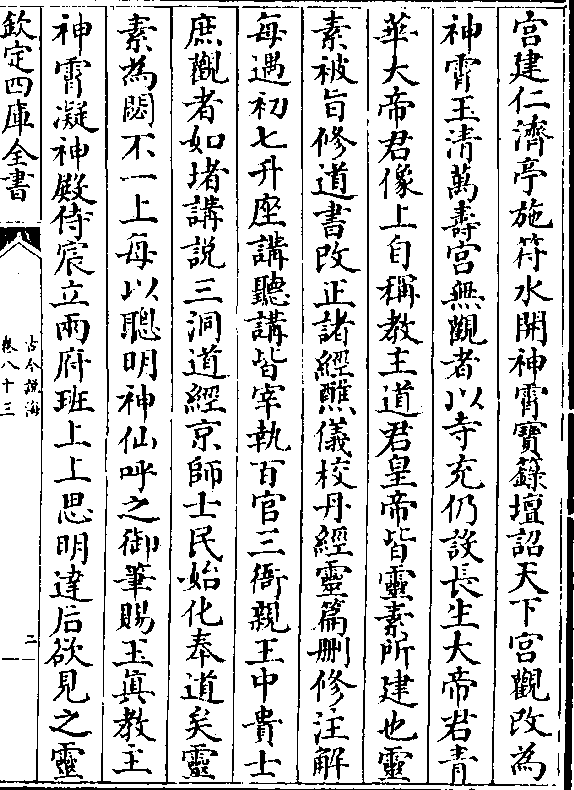 宫建仁濟亭施符水開神霄寳籙壇詔天下宫觀改為
神霄玉清萬壽宫無觀者以寺充仍設長生大帝君青
華大帝君像上自稱教主道君皇帝皆靈素所建也靈
素被旨修道書改正諸經醮儀校丹經靈篇刪修注解
每遇初七升座講聽講皆宰執百官三衙親王中貴士
庶觀者如堵講説三洞道經京師士民始化奉道矣靈
素為閎不一上每以聰明神仙呼之御筆賜玉真教主
神霄凝神殿侍宸立兩府班上上思明達后欲見之靈
欽定四庫全書
古今說海
卷八十三
二